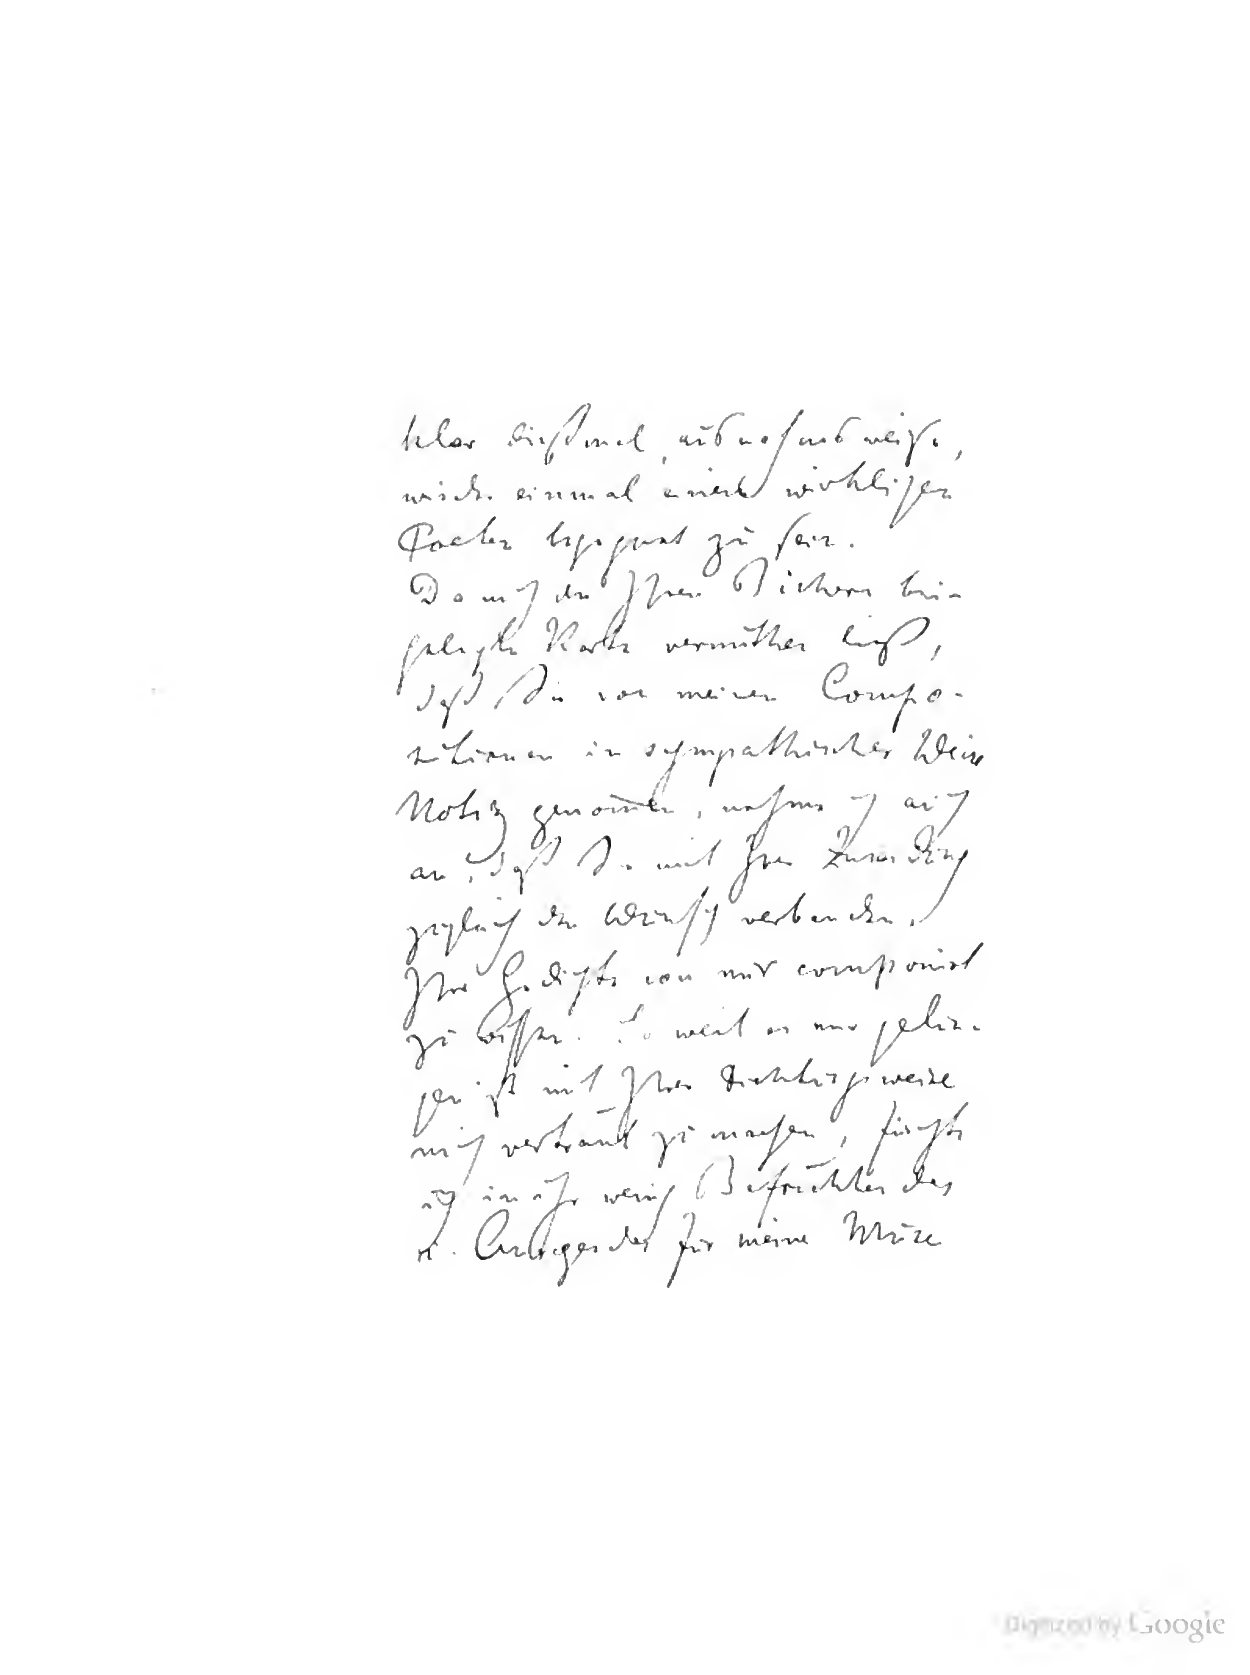 klar dießmal, ausnahmsweise,
wieder einmal einem wirklichen
Poeten begegnet zu sein.
Da mich die Ihren Büchern bei-
gelegte Karte vermuthen ließ,
daß Sie von meinen Compo-
sitionen in sympathischer Weise
Notiz genom̅en, nahm ich auch
an, daß Sie mit Ihrer Zusendung
zugleich den Wunsch verbanden,
Ihre Gedichte von mir componirt
zu wissen. So weit es mir gelun-
gen ist mit Ihrer Dichtungsweise
mich vertraut zu machen, fürchte
ich in ihr wenig Befruchtendes
u. Anregendes für meine Muse
Digitized by Google